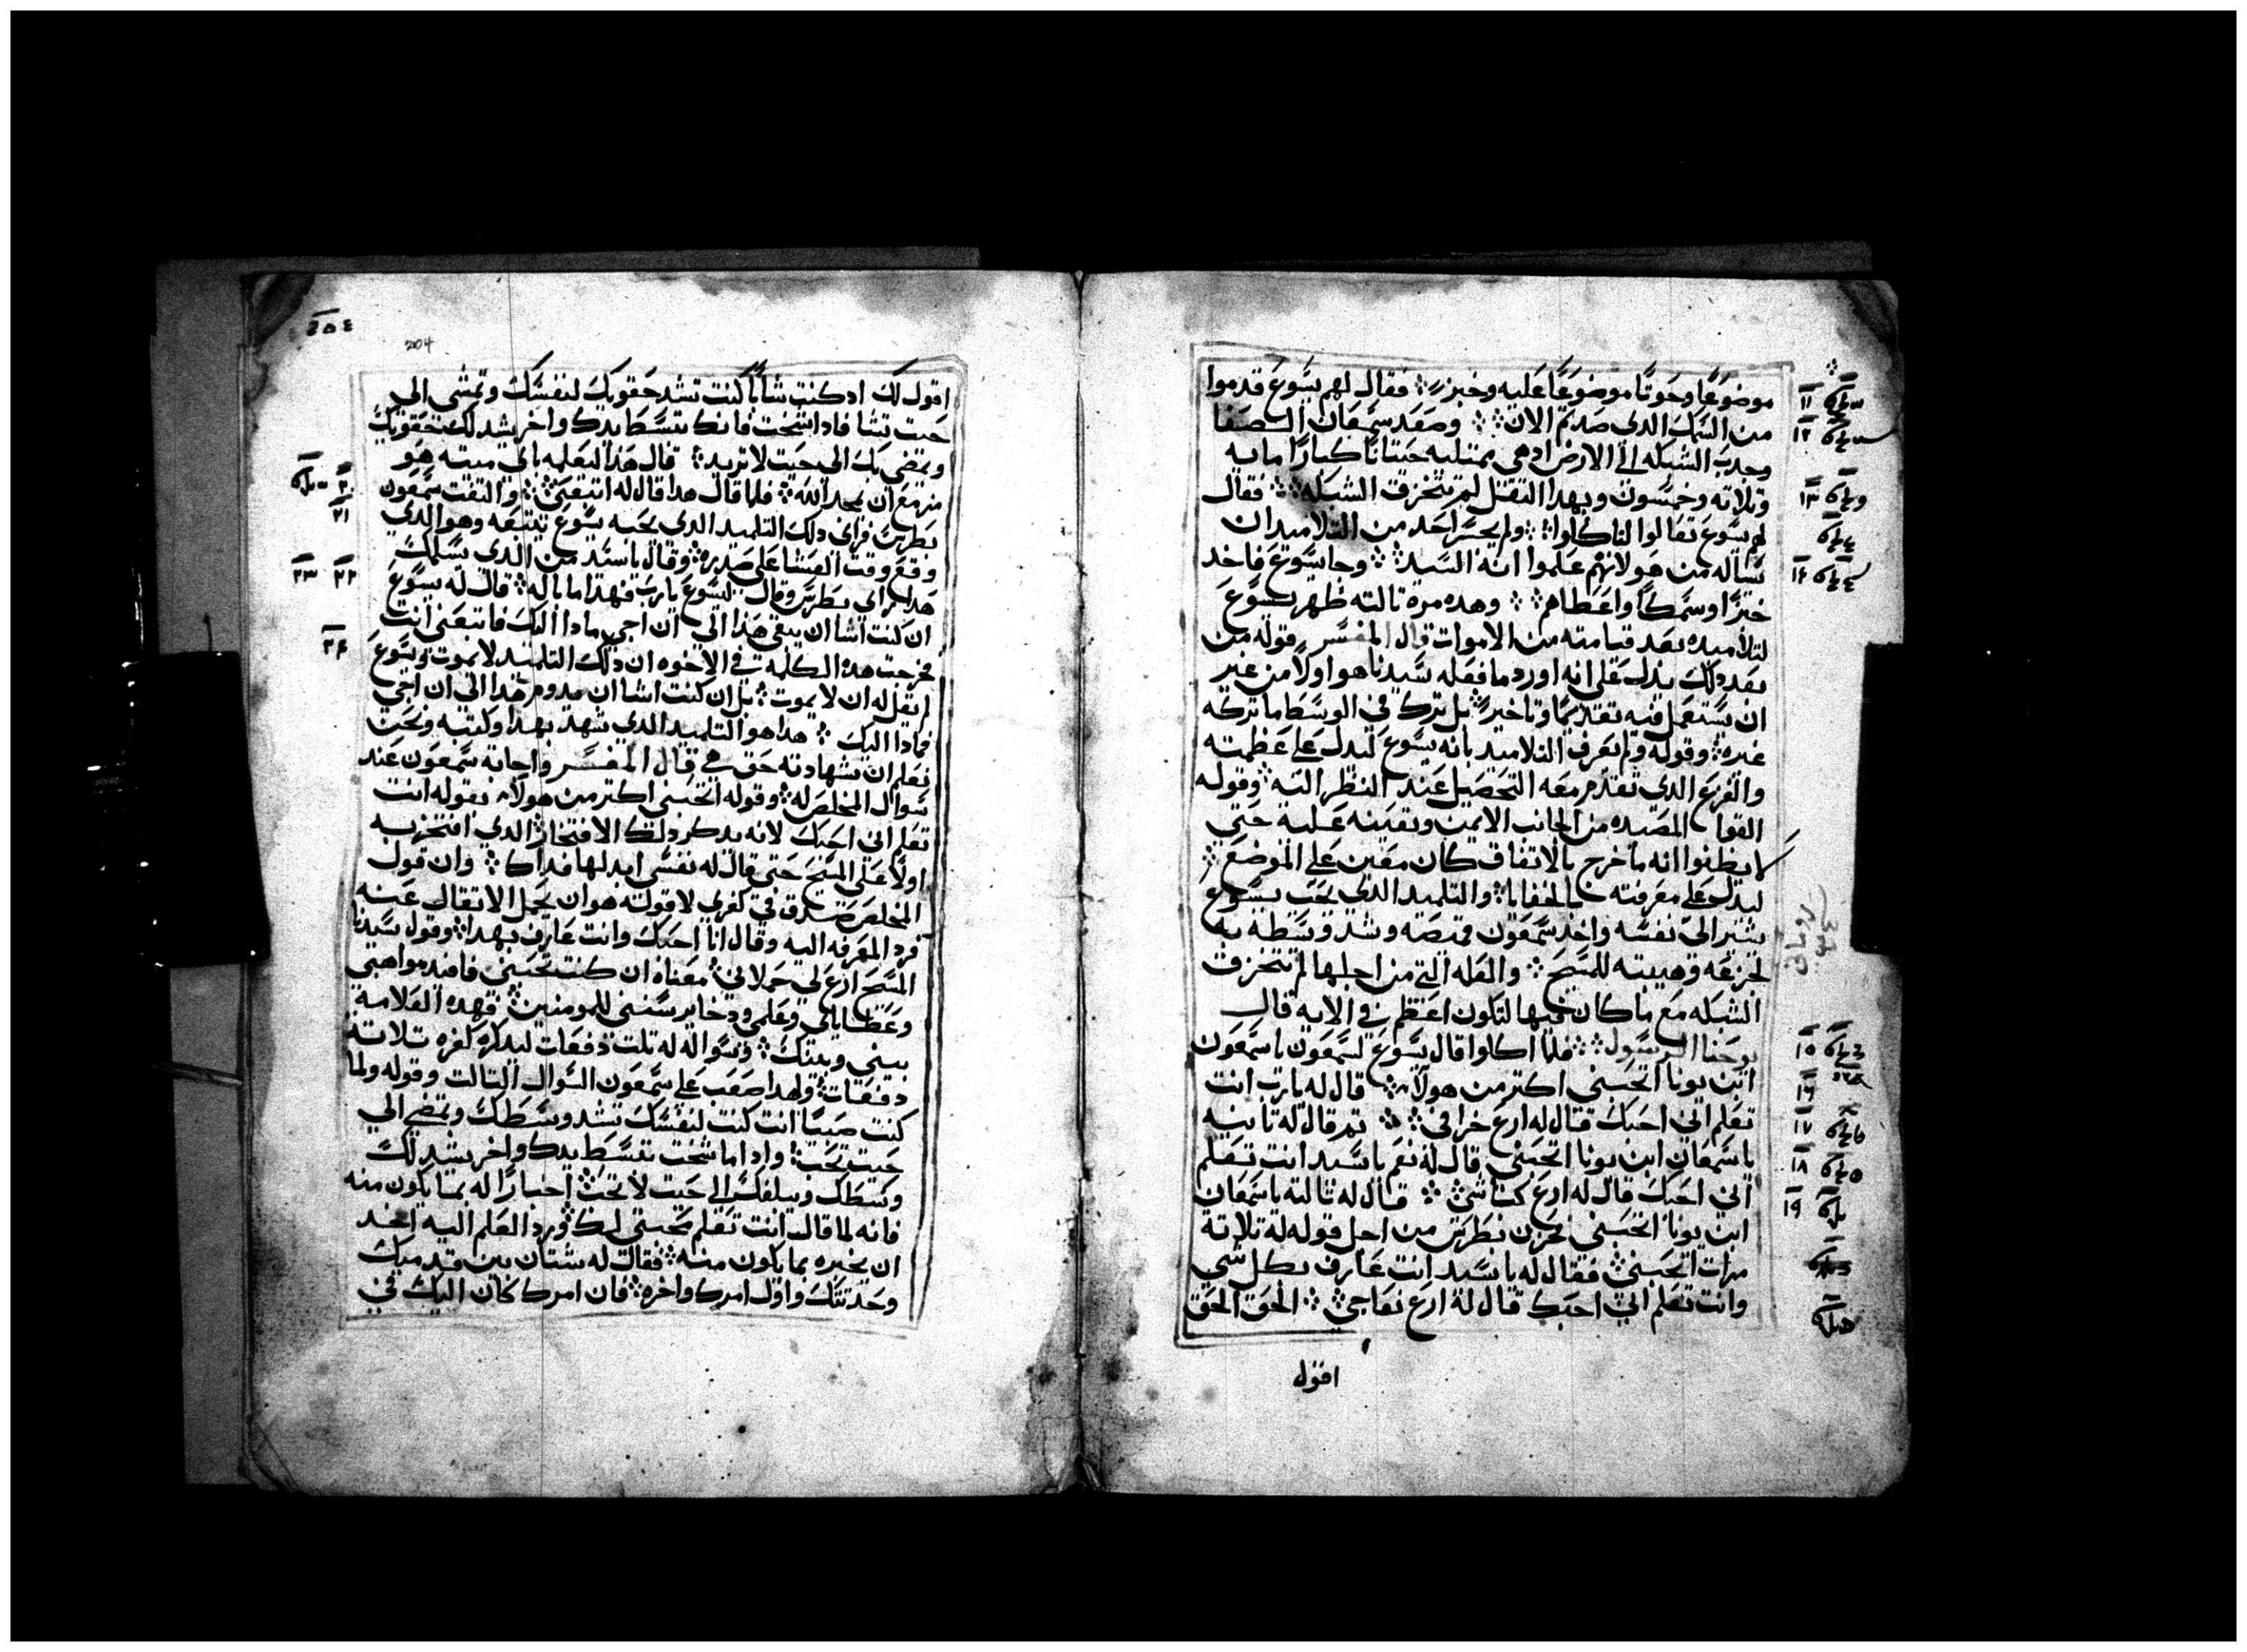 موضوعًا وحوتًا موضوعًا عليه وخبز فقال لهم يسوع قدموا
من السمك الدى صدتم الان وصعد سمعان الصفا
وجدب الشبكه الى الارض ادهى ممتليه حيتانًا كبارًا مايه
وتلاته وخمسون وبهدا التقل لم تتخزق الشبكه فقال
لهم يسوع تعالوا الناكلوا ولم يجسر احد من التلاميد ان
يساله من هو لانهم علموا انه السيد وجا يسوع فاخد
خبزًا وسمكًا واعطاهم وهده مره تالته ظهر يسوع
لتلاميده بعد قيامته من الاموات قال المفسر قوله من
بعد دلك يدل على انه اورد ما فعله سيدنا هو اولًا من غير
ان يستعمل فيه تقديمًا وتاخيرً بل ترك في الوسط ما تركه
غيره وقوله ولم يعرف التلاميد بانه يسوع ليدل على عظمته
والفزع الدى تقدم معه التحصيل عند النظر اليه وقوله
القوا المصيده من الجانب الايمن وتعينه عليه حتى
لا يظنوا انه ما خرج بالاتفاق كان معين على الموضع
ليدل على معرفته بالخفايا والتلميد الدى يحب يسوع
يشير الى نفسه واخد سمعون قميصه وشد وسطه به
لجزعه وهيبته للمسيح والعله التى من اجلها لم تتخزق
الشبكه مع ما كان فيها لتكون اعظم في الايه قال
يوحنا الرسول فلما اكلوا قال يسوع لسمعون يا سمعون
ابن يونا اتحبنى اكتر من هولاء قال له يا رب انت
تعلم انى احبك فقال له ارع خرافى تم قال له تانيه
يا سمعان ابن يونا اتحبنى قال له نعم يا سيد انت تعلم
انى احبك قال له ارع كباشى قال له تالته يا سمعان
ابن يونا اتحبنى فحزن بطرس من اجل قوله له تلاته
مرات اتحبنى فقال له يا سيد انت عارف بكل شى
وانت تعلم انى احبك قال له ارع نعاجى الحق الحق
اقول
204
اقول لك اد كنت شابًا كنت تشد حقويك لنفسك وتمشى الى
حيت تشا فادا شخت فانك تبسط يدك واخر يشد لك حقويك
ويمضى بك الى حيت لا تريد قال هدا ليعلمه باى ميته هو
مزمع ان يمجد الله فلما قال هدا قال له اتبعنى والتفت سمعون
بطرس فراى دلك التلميد الدى يحبه يسوع يتبعه وهو الدى
وقع وقت العشا على صدره وقال يا سيد من الدى يسلمك
هدا راى بطرس وقال ليسوع يا رب فهدا ما باله قال له يسوع
ان كنت اشا ان يبقى هدا الى ان اجى مادا اليك فاتبعنى انت
فخرجت هده الكلمه في الاخوه ان دلك التلميد لا يموت ويسوع
لم يقل له ان لا يموت بل ان كنت اشا ان يدوم هدا الى ان اجى
فمادا اليك هدا هو التلميد الدى شهد بهدا وكتبه ونحن
نعلم ان شهادته حق قال المفسر واجابه سمعون عند
سوال المخلص له وقوله اتحبنى اكتر من هولاء بقوله انت
تعلم انى احبك لانه يدكر دلك الافتخار الدى افتخر به
اولًا على المسيح حتى قال له نفسى ابدلها فداك وان قول
المخلص صدق في كفرى لا قوله هو ان يحمل الاتقال عنه
فرد المعرفه اليه وقال انا احبك وانت عارف بهدا وقول سيدنا
المسيح ارع لى حملانى معناه ان كنت تحبنى فافيد مواهبى
وعظاياى وعلمى ودخاير سننى للمومنين فهده العلامه
بينى وبينك وسواله له تلت دفعات ليدكره كفره تلاته
دفعات ولهدا صعب على سمعون السوال التالت وقوله ولما
كنت صبيًا انت كنت لنفسك تشد وسطك وتمضى الى
حيت تحب وادا ما شخت تبسط يدك واخر يشد لك
وسطك الى حيت لا تحب اخبارًا له بما يكون منه
فانه لما قال انت تعلم محبتى لك ورد العلم اليه اخد
ان يخبره بما يكون منه فقال له شتان بين قديمك
وحديتك واول امرك واخره فان امرك كان اليك في